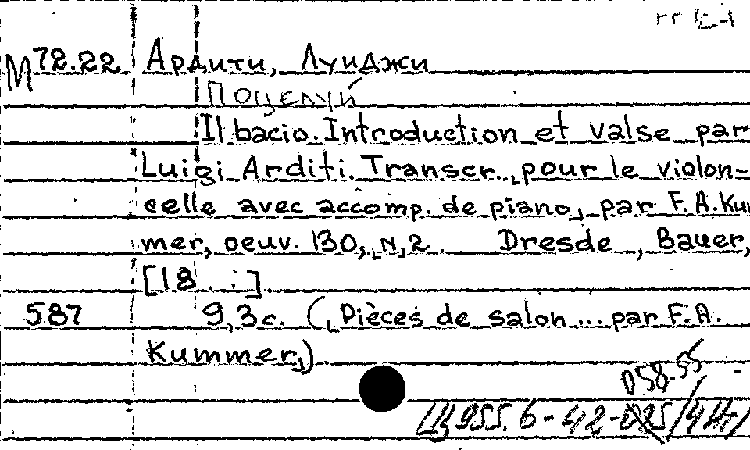 М 72.22 Ардити, Луиджи
Поцелуй
Il bacio. Introduction et valse par
Luigi Arditi. Transcr., pour le violon-
celle avec accomp. de piano, par F.A.Kum
mer, oeuv. 130, N,2. Dresde, Bauer,
[18 . .]
587 9,3с. (Pièces de salon... par F.A.
Kummer,)
D58-55